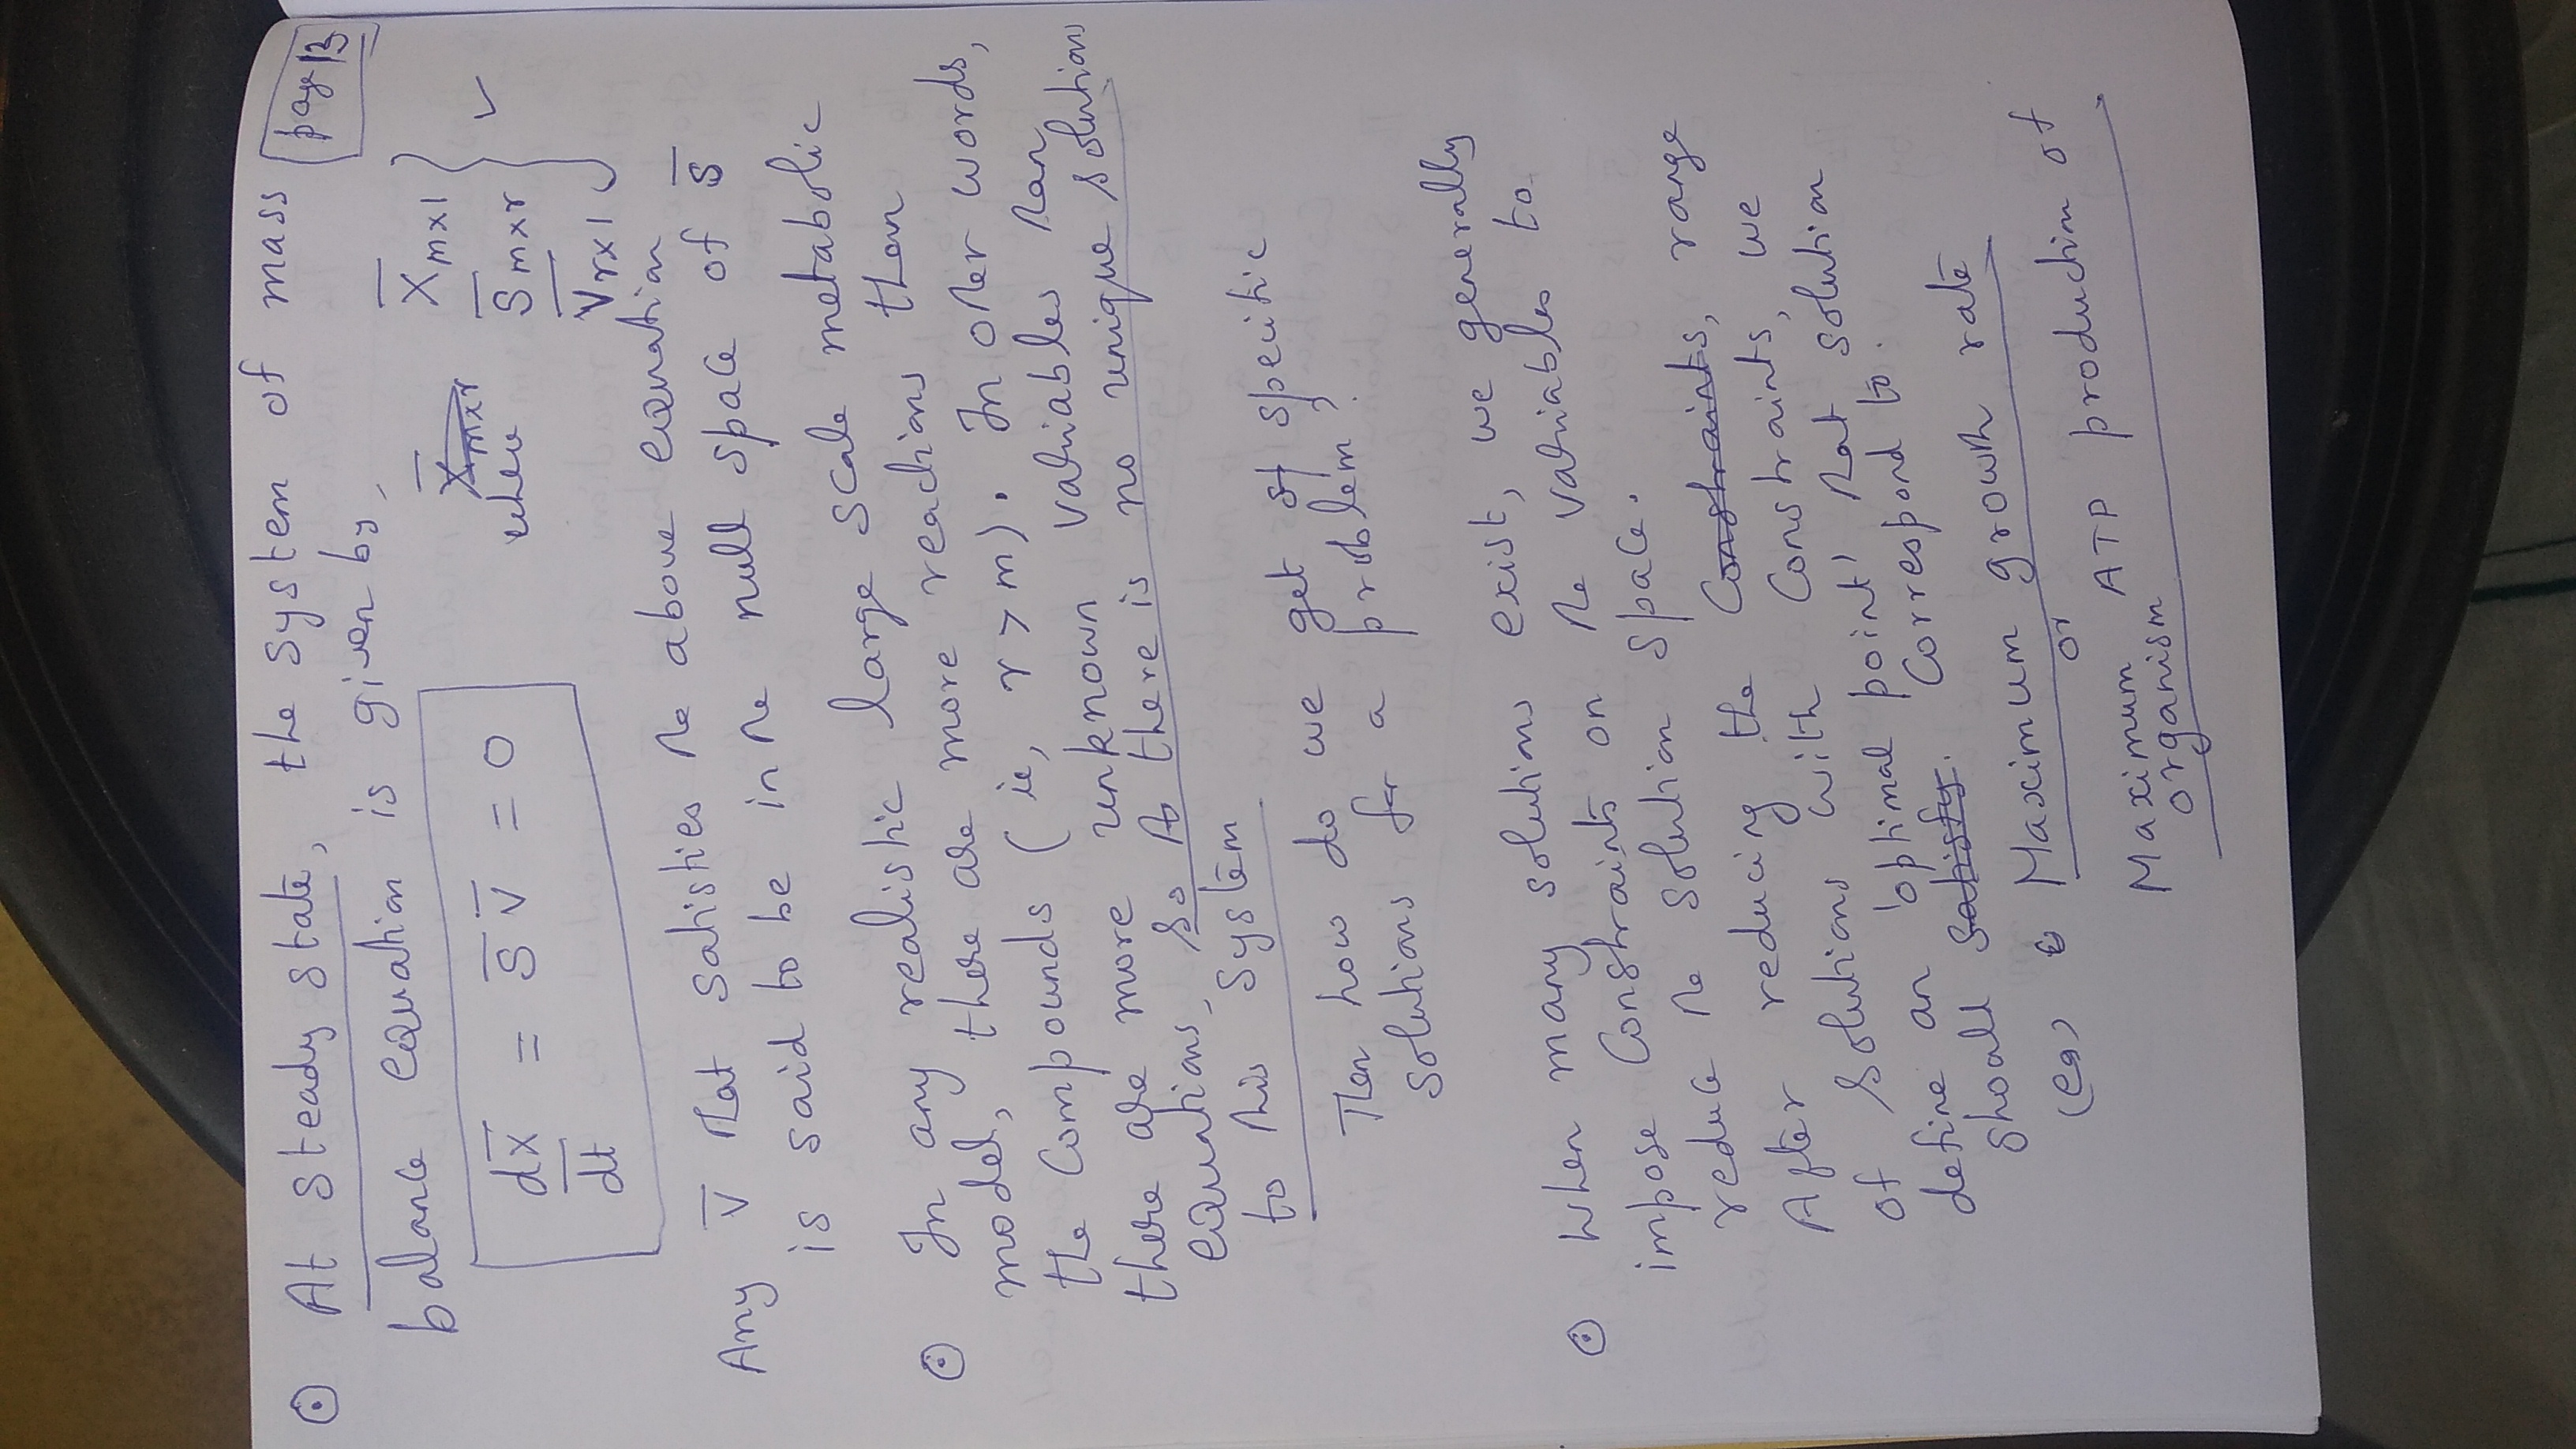 ⊙ At steady state, the system of mass
page 13
balance equation is given by,
dx̄/dt = S̄ V̄ = 0
where
X̄ m×1
S̄ m×r
V̄ r×1
✓
Any V̄ that satisfies the above equation
is said to be in the null space of S̄
⊙ In any realistic large scale metabolic
model, there are more reactions than
the compounds (ie, r > m). In other words,
there are more unknown variables than
equations, so there is no unique solutions
to this system
Then how do we get specific
solutions for a problem?
⊙ When many solutions exist, we generally
impose constraints on the variables to
reduce the solution space.
After reducing the constraints, range
of solutions with constraints, we
define an 'optimal point' that solution
should satisfy. correspond to.
(eg) Maximum growth rate
or
Maximum ATP production of
organism